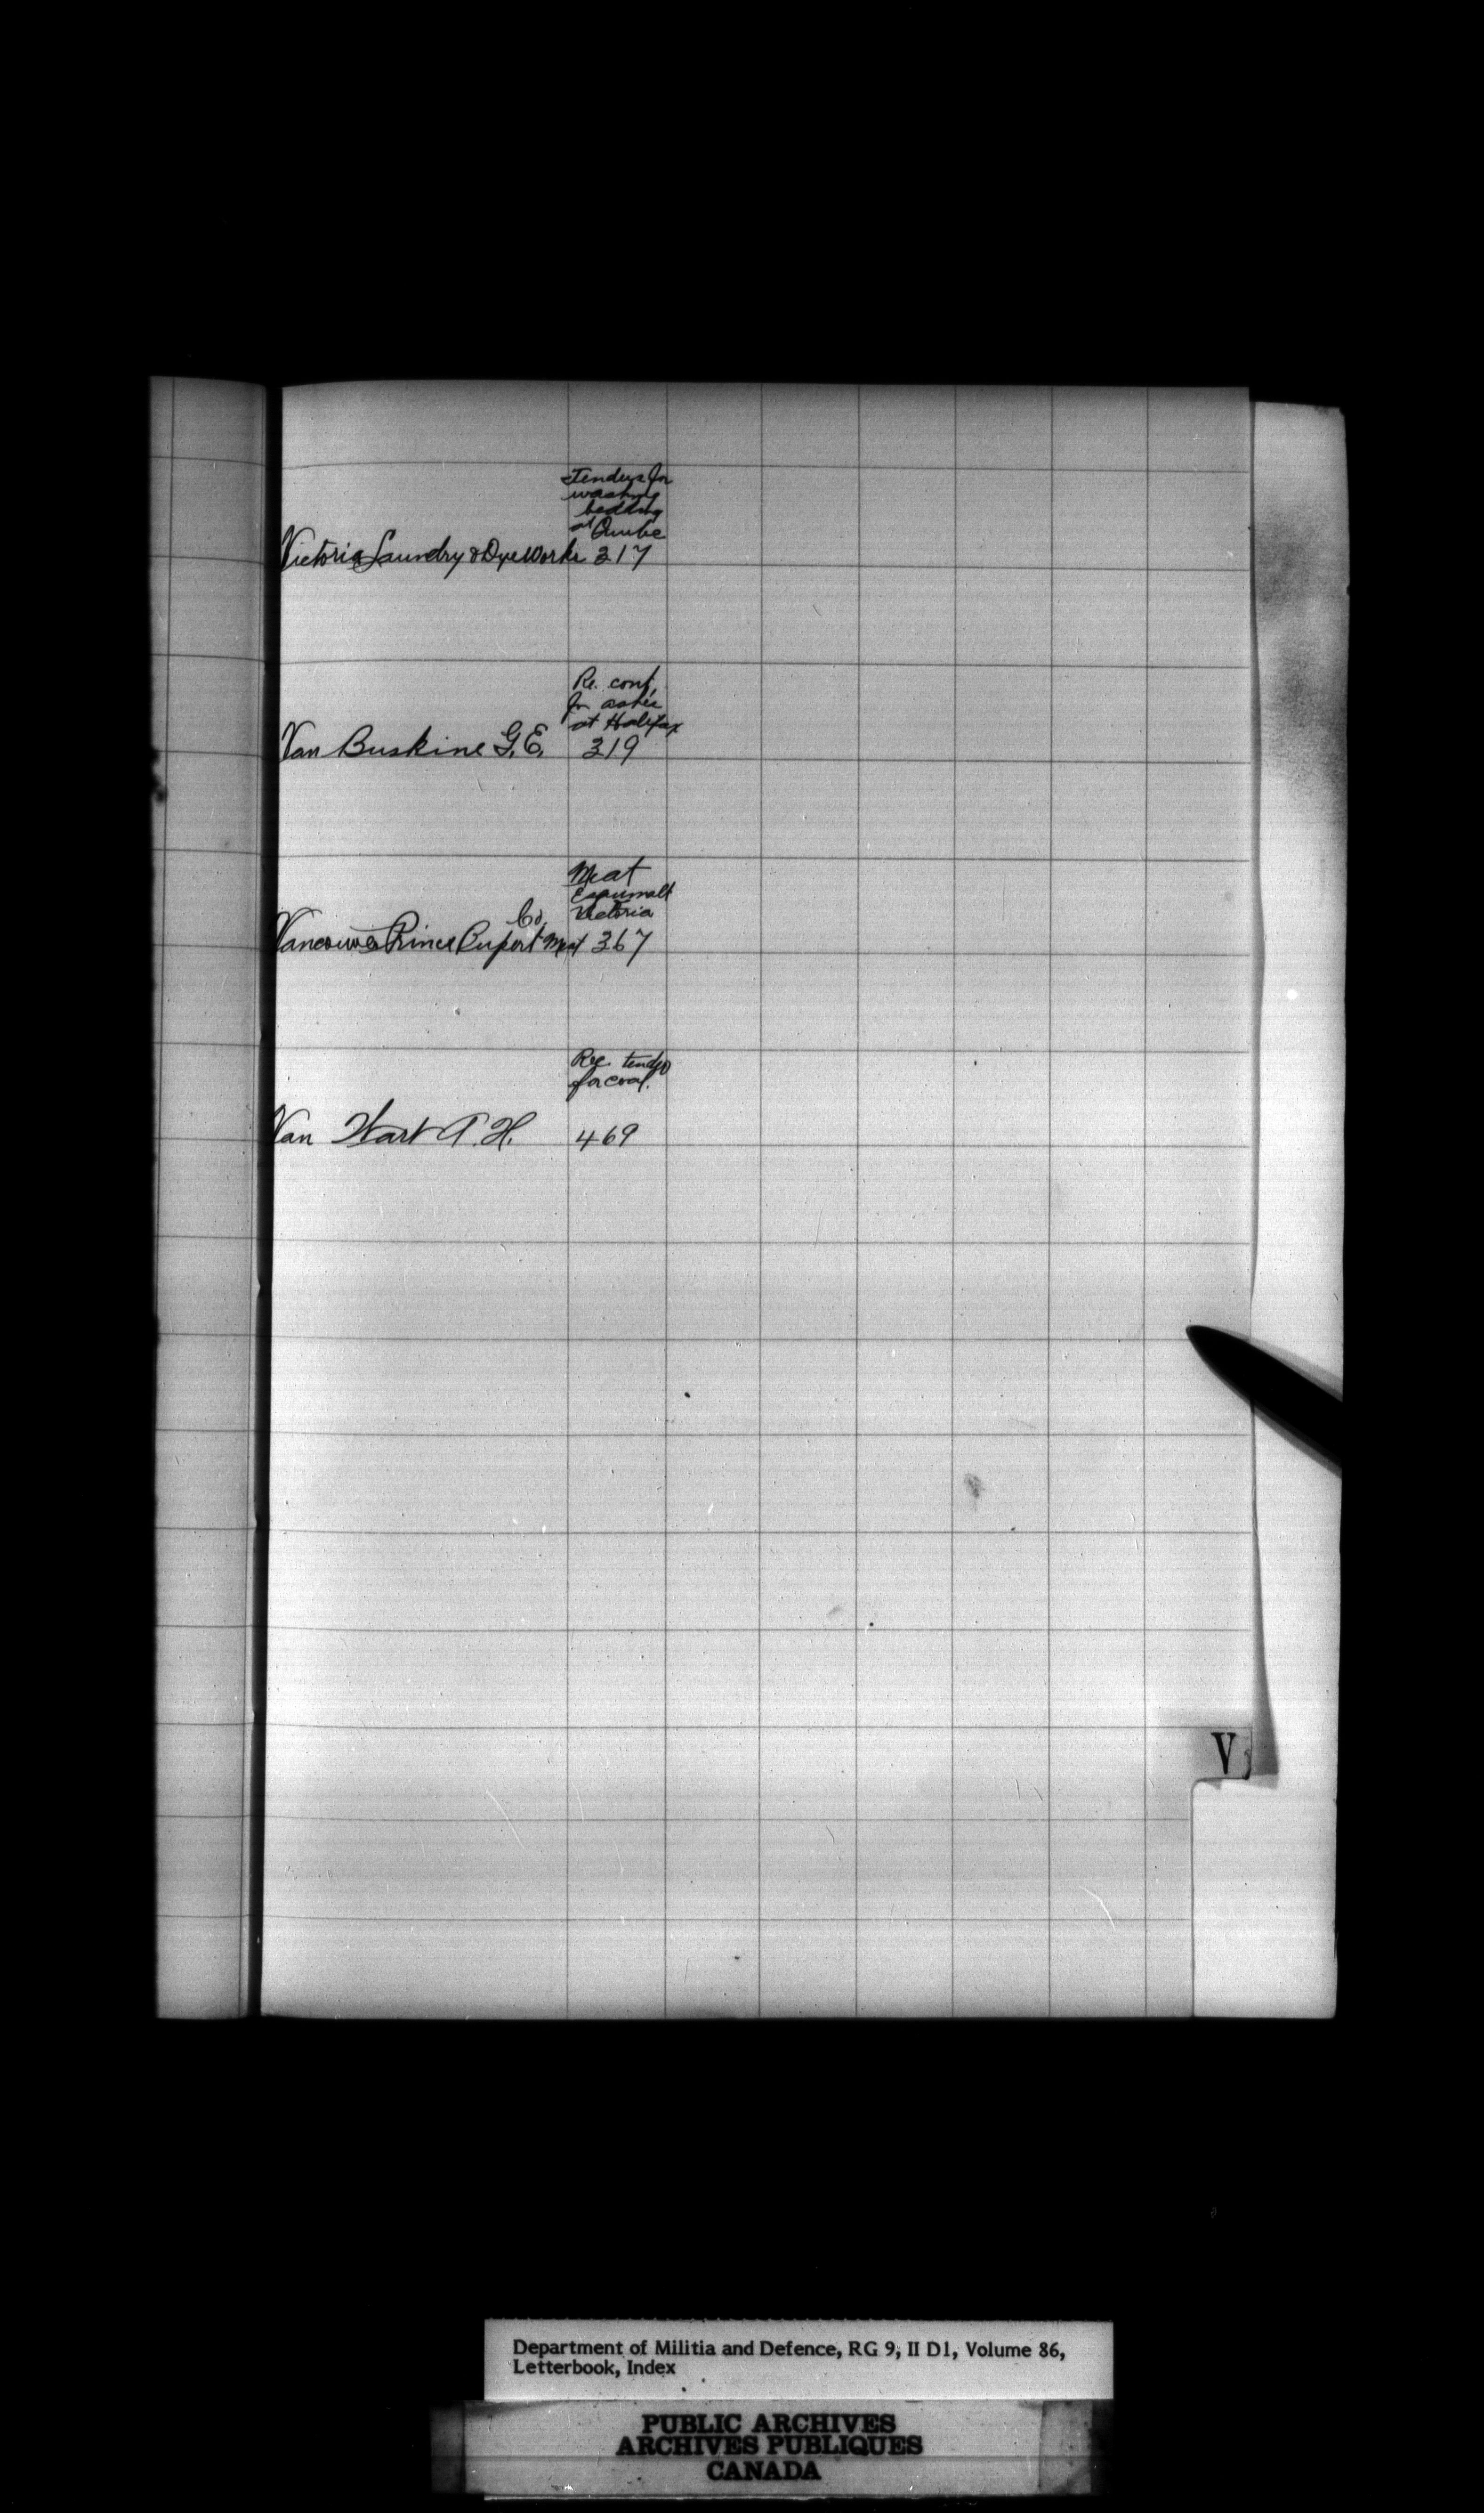 Tenders for
washing
bedding
at Quebe
Victoria Laundry & Dye Works 317
Re. cont,
for ashes
at Halifax
Van Buskine G. E. 319
Meat
Esquimalt
Victoria
Co.
Vancouver Prince Rupert Meat 367
Re tender
for coal.
Van Wart A. H. 469
V
Department of Militia and Defence, RG 9, II D1, Volume 86,
Letterbook, Index
PUBLIC ARCHIVES
ARCHIVES PUBLIQUES
CANADA